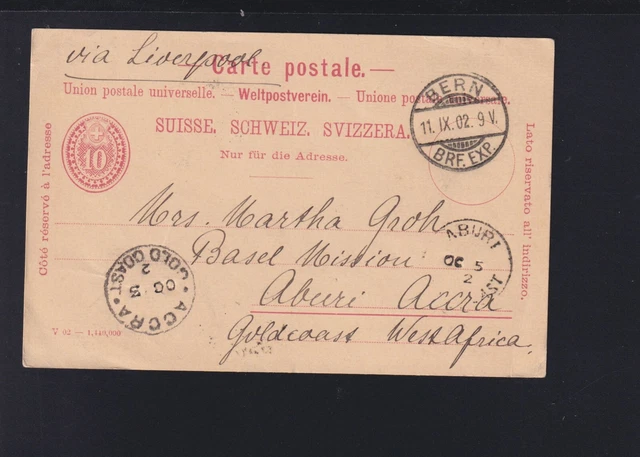 via Liverpool
— Carte postale. —
Union postale universelle. — Weltpostverein. — Unione postale universale.
SUISSE. SCHWEIZ. SVIZZERA.
Nur für die Adresse.
10
Côté réservé à l'adresse
Lato riservato all' indirizzo.
BERN
11. IX. 02. 9 V.
BRF. EXP.
Mrs. Martha Groh
Basel Mission
Aburi Accra
Goldcoast West Africa.
ABURI
OC 5
2
AST
ACCRA
OC 3
2
GOLD COAST
V 02 — 1,140,000